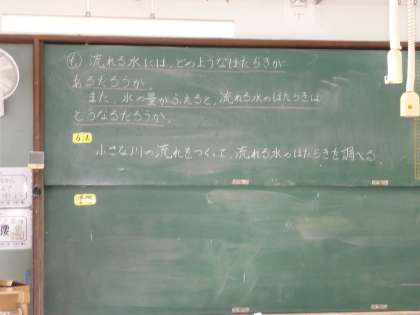 流れる水には、どのようなはたらきが
あるだろうか。
また、水の量がふえると、流れる水のはたらきは
どうなるだろうか。
小さな川の流れをつくって、流れる水のはたらきを調べる